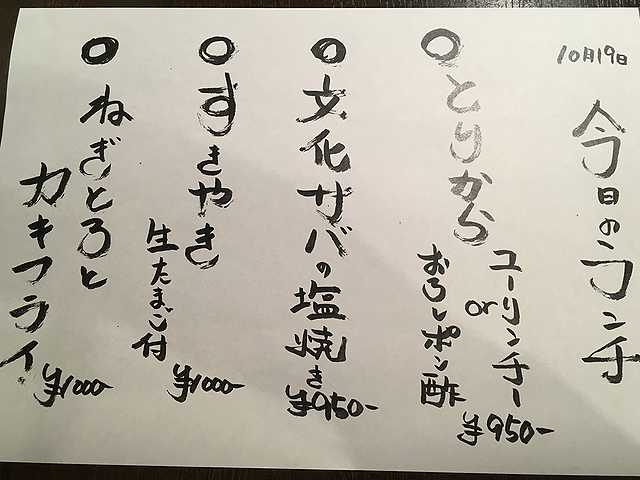 10月19日
今日のランチ
○とりから
ユーリンチー
or
おろしポン酢
¥950-
○文化サバの塩焼き
¥950-
○すきやき
生たまご付
¥1000-
○ねぎとろと
カキフライ
¥1000-